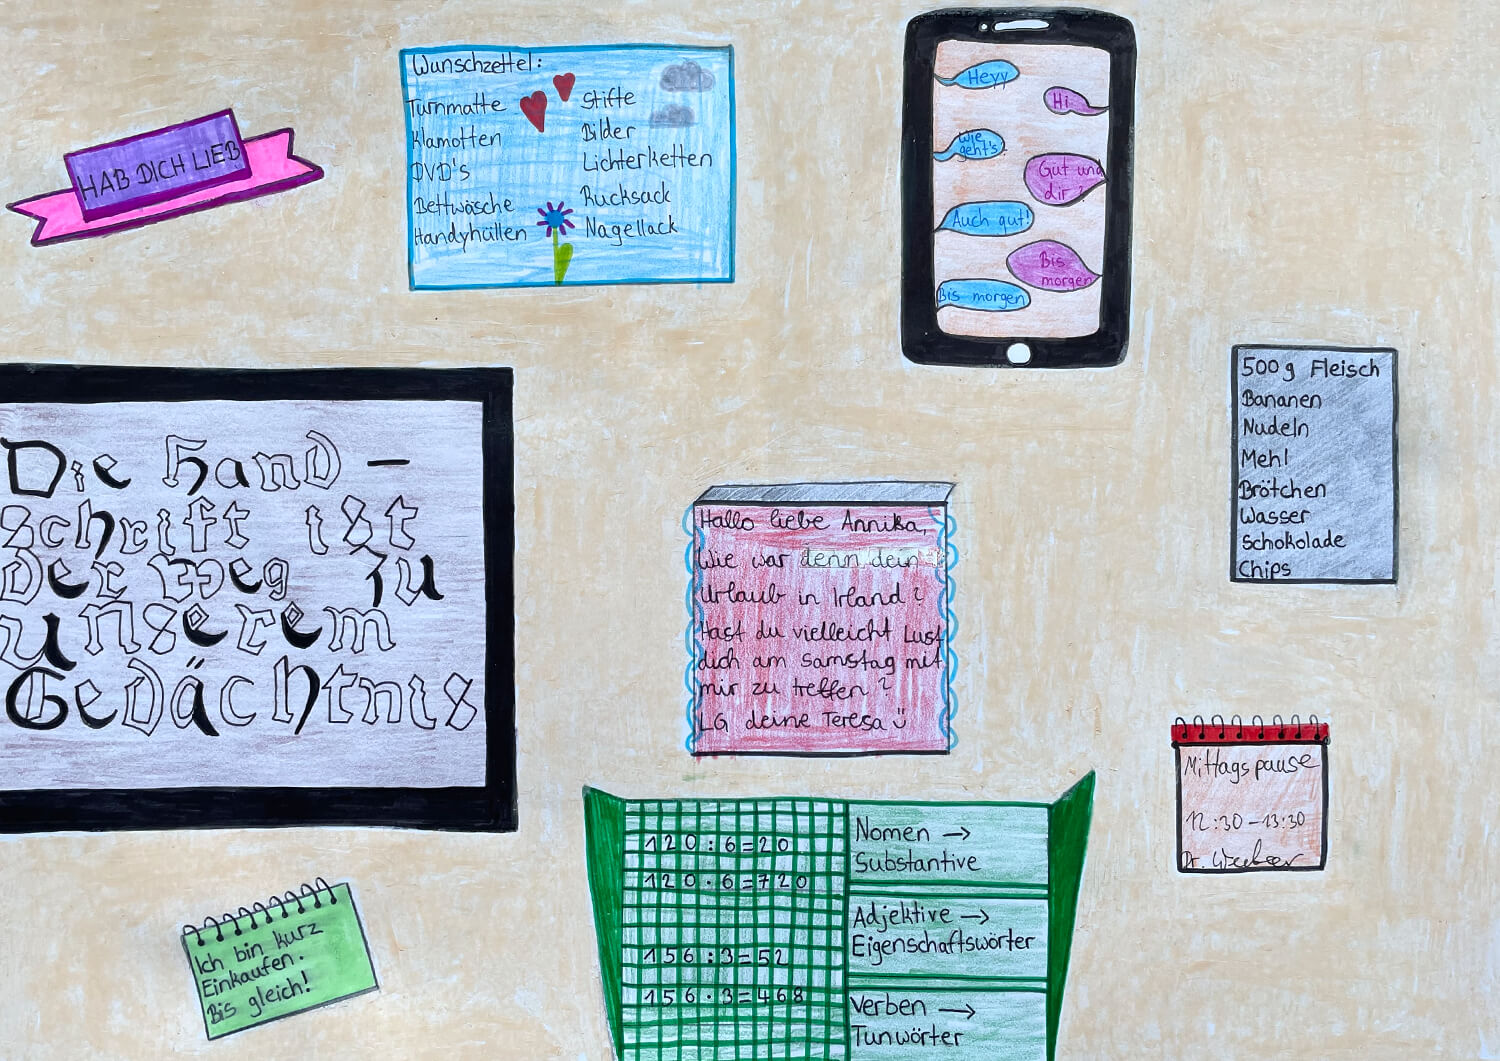 HAB DICH LIEB
Wunschzettel:
Turnmatte
Klamotten
DVD's
Bettwäsche
Handyhüllen
Stifte
Bilder
Lichterketten
Rucksack
Nagellack
Heyy
Hi
Wie
geht's
Gut und
dir?
Auch gut!
Bis
morgen
Bis morgen
Die Hand-
schrift ist
der Weg zu
unserem
Gedächtnis
500g Fleisch
Bananen
Nudeln
Mehl
Brötchen
Wasser
Schokolade
Chips
Hallo liebe Annika,
Wie war denn dein
Urlaub in Irland?
Hast du vielleicht Lust
dich am Samstag mit
mir zu treffen?
LG deine Teresa
Mittagspause
12:30-13:30
Dr.
120:6=20
120·6=720
156:3=52
156·3=468
Nomen →
Substantive
Adjektive →
Eigenschaftswörter
Verben →
Tunwörter
Ich bin kurz
Einkaufen.
Bis gleich!